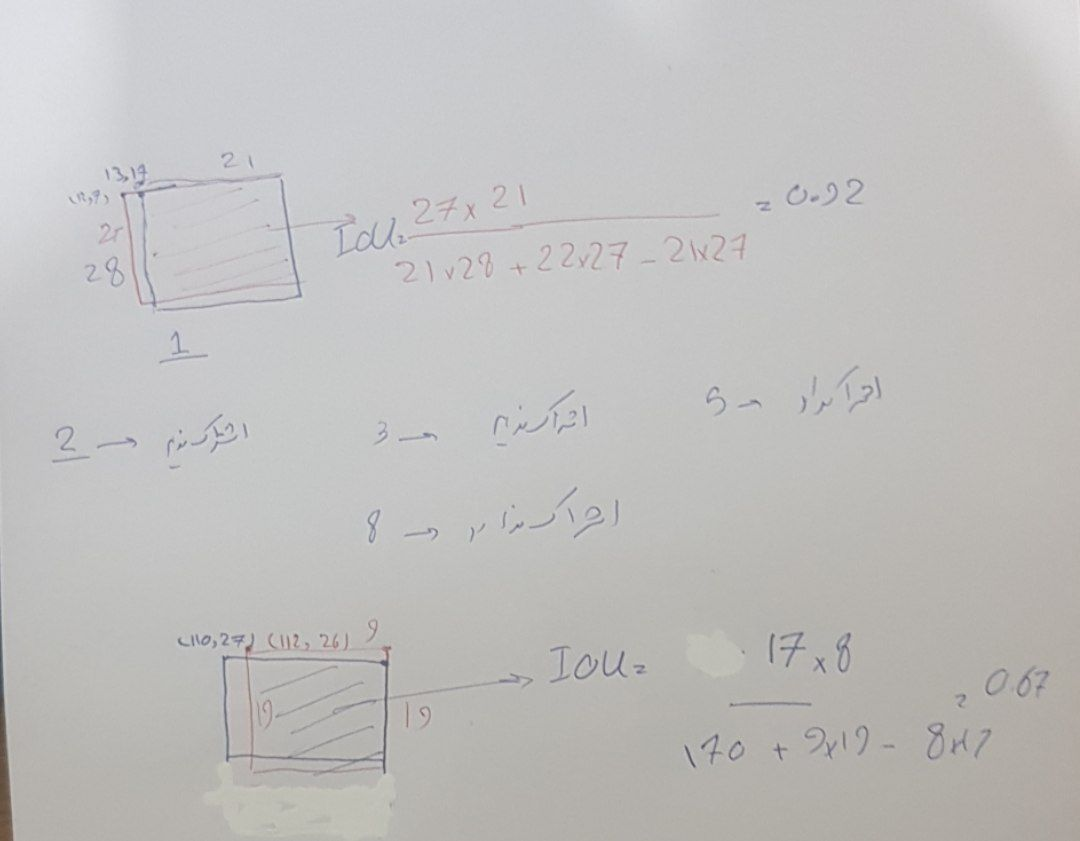 13,17 21
(12,7)
28
IOU= 27x21 / 21x28 + 22x27 - 21x27 = 0.92
1
2 → اشتراک نداریم
3 → اشتراک نداریم
5 → اشتراک ندارد
8 → اشتراک ندارد
(110,27) (112, 26) 9
19 19
IOU= 17x8 / 170 + 9x19 - 8x17 = 0.67